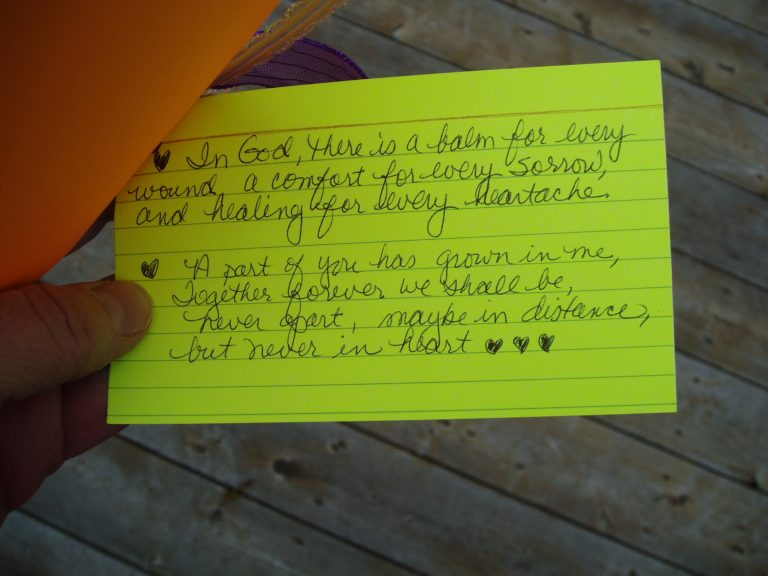 ♥ In God, there is a balm for every
wound, a comfort for every sorrow,
and healing for every heartache.
♥ A part of you has grown in me,
Together forever we shall be,
never apart, maybe in distance,
but never in heart ♥ ♥ ♥